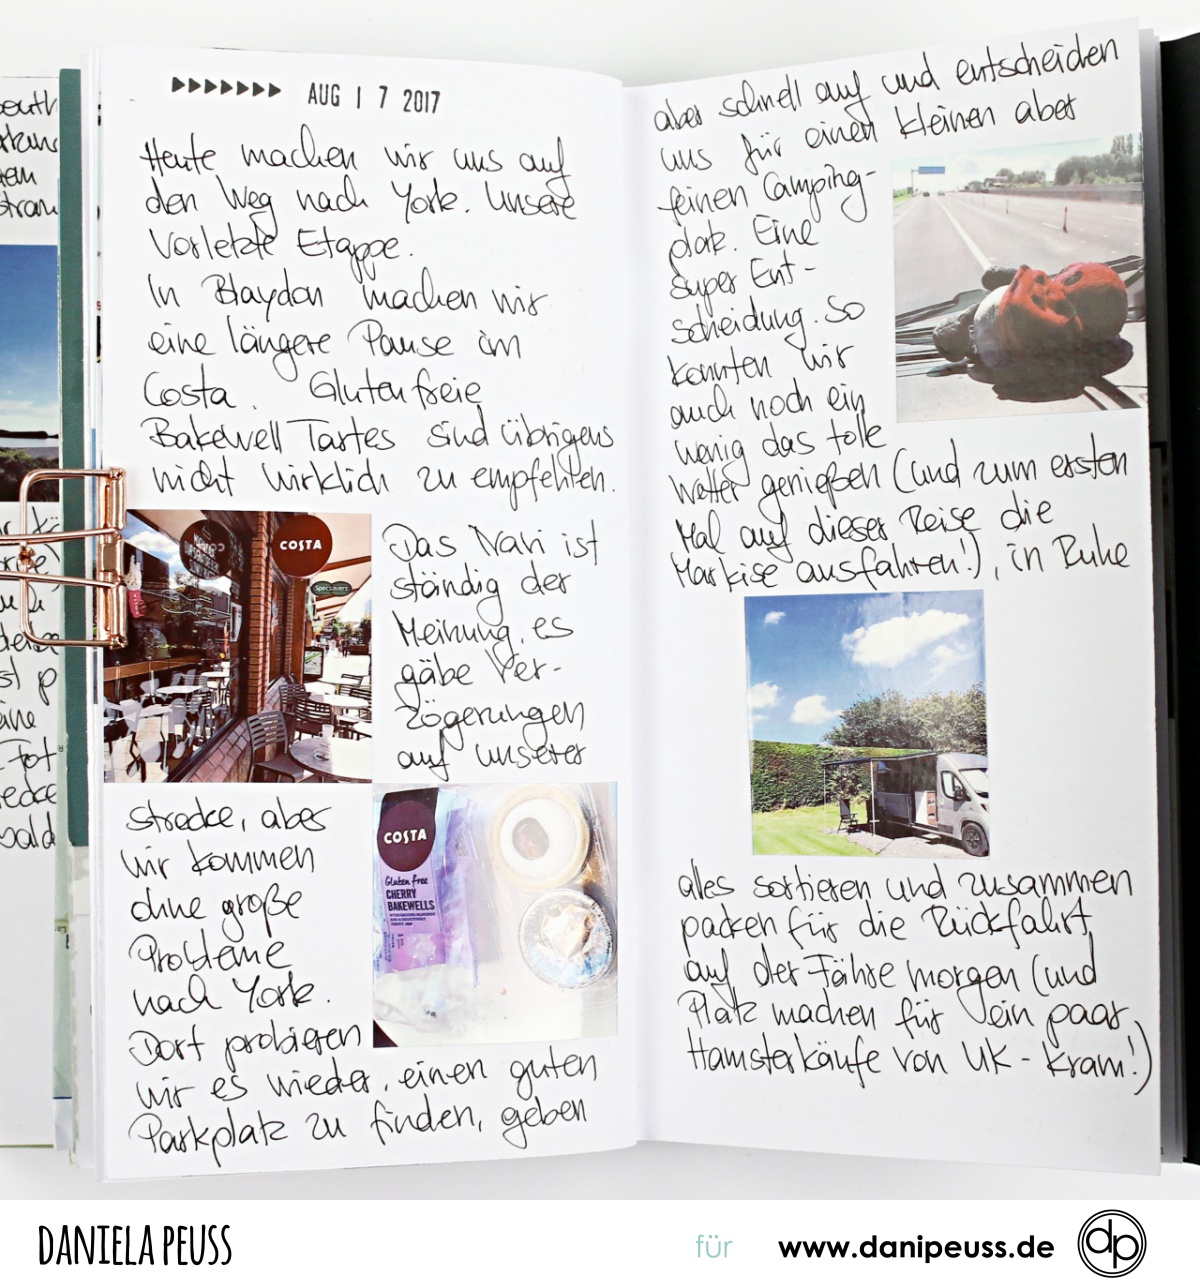 AUG 17 2017
Heute machen wir uns auf
den Weg nach York. Unsere
vorletzte Etappe.
In Blaydon machen wir
eine längere Pause im
Costa. Glutenfreie
Bakewell Tartes sind übrigens
nicht wirklich zu empfehlen.
COSTA
Specsavers
Das Navi ist
ständig der
Meinung, es
gäbe Ver-
zögerungen
auf unserer
Strecke, aber
wir kommen
ohne große
Probleme
nach York.
Dort probieren
wir es wieder, einen guten
Parkplatz zu finden, geben
COSTA
Gluten free
CHERRY
BAKEWELLS
aber schnell auf und entscheiden
uns für einen kleinen aber
feinen Camping-
platz. Eine
super Ent-
scheidung. So
konnten wir
auch noch ein
wenig das tolle
Wetter genießen (und zum ersten
Mal auf dieser Reise die
Markise ausfahren!), in Ruhe
alles sortieren und zusammen
packen für die Rückfahrt
auf der Fähre morgen (und
Platz machen für ein paar
Hamsterkäufe von UK-Kram!)
DANIELA PEUSS
für www.danipeuss.de
dp